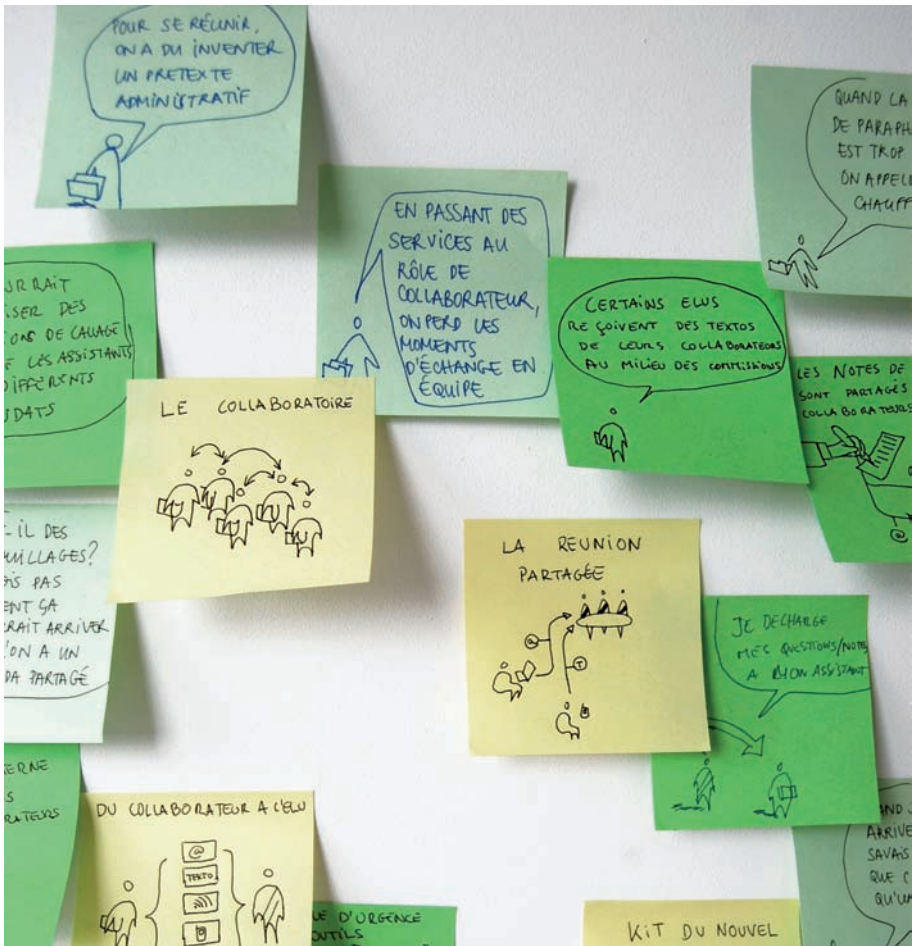 POUR SE RÉUNIR,
ON A DU INVENTER
UN PRETEXTE
ADMINISTRATIF
QUAND LA
DE
EST TROP
ON
EN PASSANT DES
SERVICES AU
RÔLE DE
COLLABORATEUR,
ON PERD LES
MOMENTS
D'ÉCHANGE EN
ÉQUIPE
DES
DE CALLAGE
LES ASSISTANTS
DIFFÉRENTS
CERTAINS ELUS
REÇOIVENT DES TEXTOS
DE LEURS COLLABORATEURS
AU MILIEU DES COMMISSIONS
LES NOTES DE
SONT PARTAGÉS
COLLABORATEURS
@
LE COLLABORATOIRE
IL DES
PAS
ÇA
ARRIVER
ON A UN
PARTAGÉ
LA REUNION
PARTAGÉE
@
T
JE DECHARGE
MES QUESTIONS/NOTES
A MON ASSISTANT
DU COLLABORATEUR A L'ELU
@
TEXTO
ARRIVE
SAVAIS
QUE
D'URGENCE
OUTILS
KIT DU NOUVEL